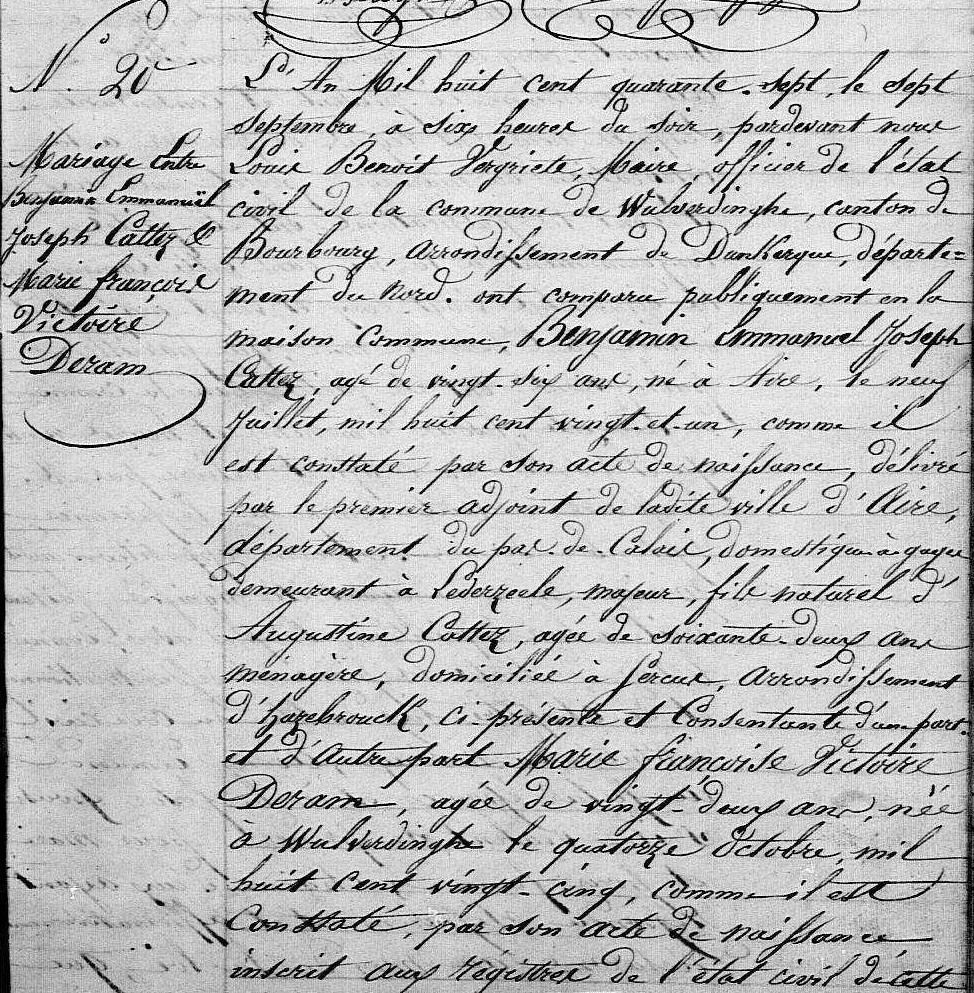 N.° 20
Mariage Entre
Benjamin Emmanuël
Joseph Cattez &
Marie françoise
Victoire
Deram
L'An Mil huit cent quarante-sept, le sept
septembre, à six heures du soir, pardevant nous
Louis Benoit Vergriete, Maire, officier de l'état
civil de la commune de Wulverdinghe, canton de
Bourbourg, arrondissement de Dunkerque, départe=
ment du Nord. ont comparu publiquement en la
maison Commune, Benjamin Emmanuel Joseph
Cattez, agé de vingt-six ans, né à Aire, le neuf
Juillet, mil huit cent vingt-et-un, comme il
est constaté par son acte de naissance, délivré
par le premier adjoint de ladite ville d'Aire,
département du pas-de-Calais, domestique à gages
demeurant à Léderzeele, majeur, fils naturel d'
Augustine Cattez, agée de soixante-deux ans
ménagère, domiciliée à Sercus, arrondissement
d'hazebrouck, ci-présente et Consentante d'une part.
et d'autre part Marie françoise Victoire
Deram, agée de vingt-deux ans, née
à Wulverdinghe le quatorze Octobre, mil
huit cent vingt-cinq, comme il est
Constaté, par son acte de naissance
inscrit aux régistres de l'état civil de cette